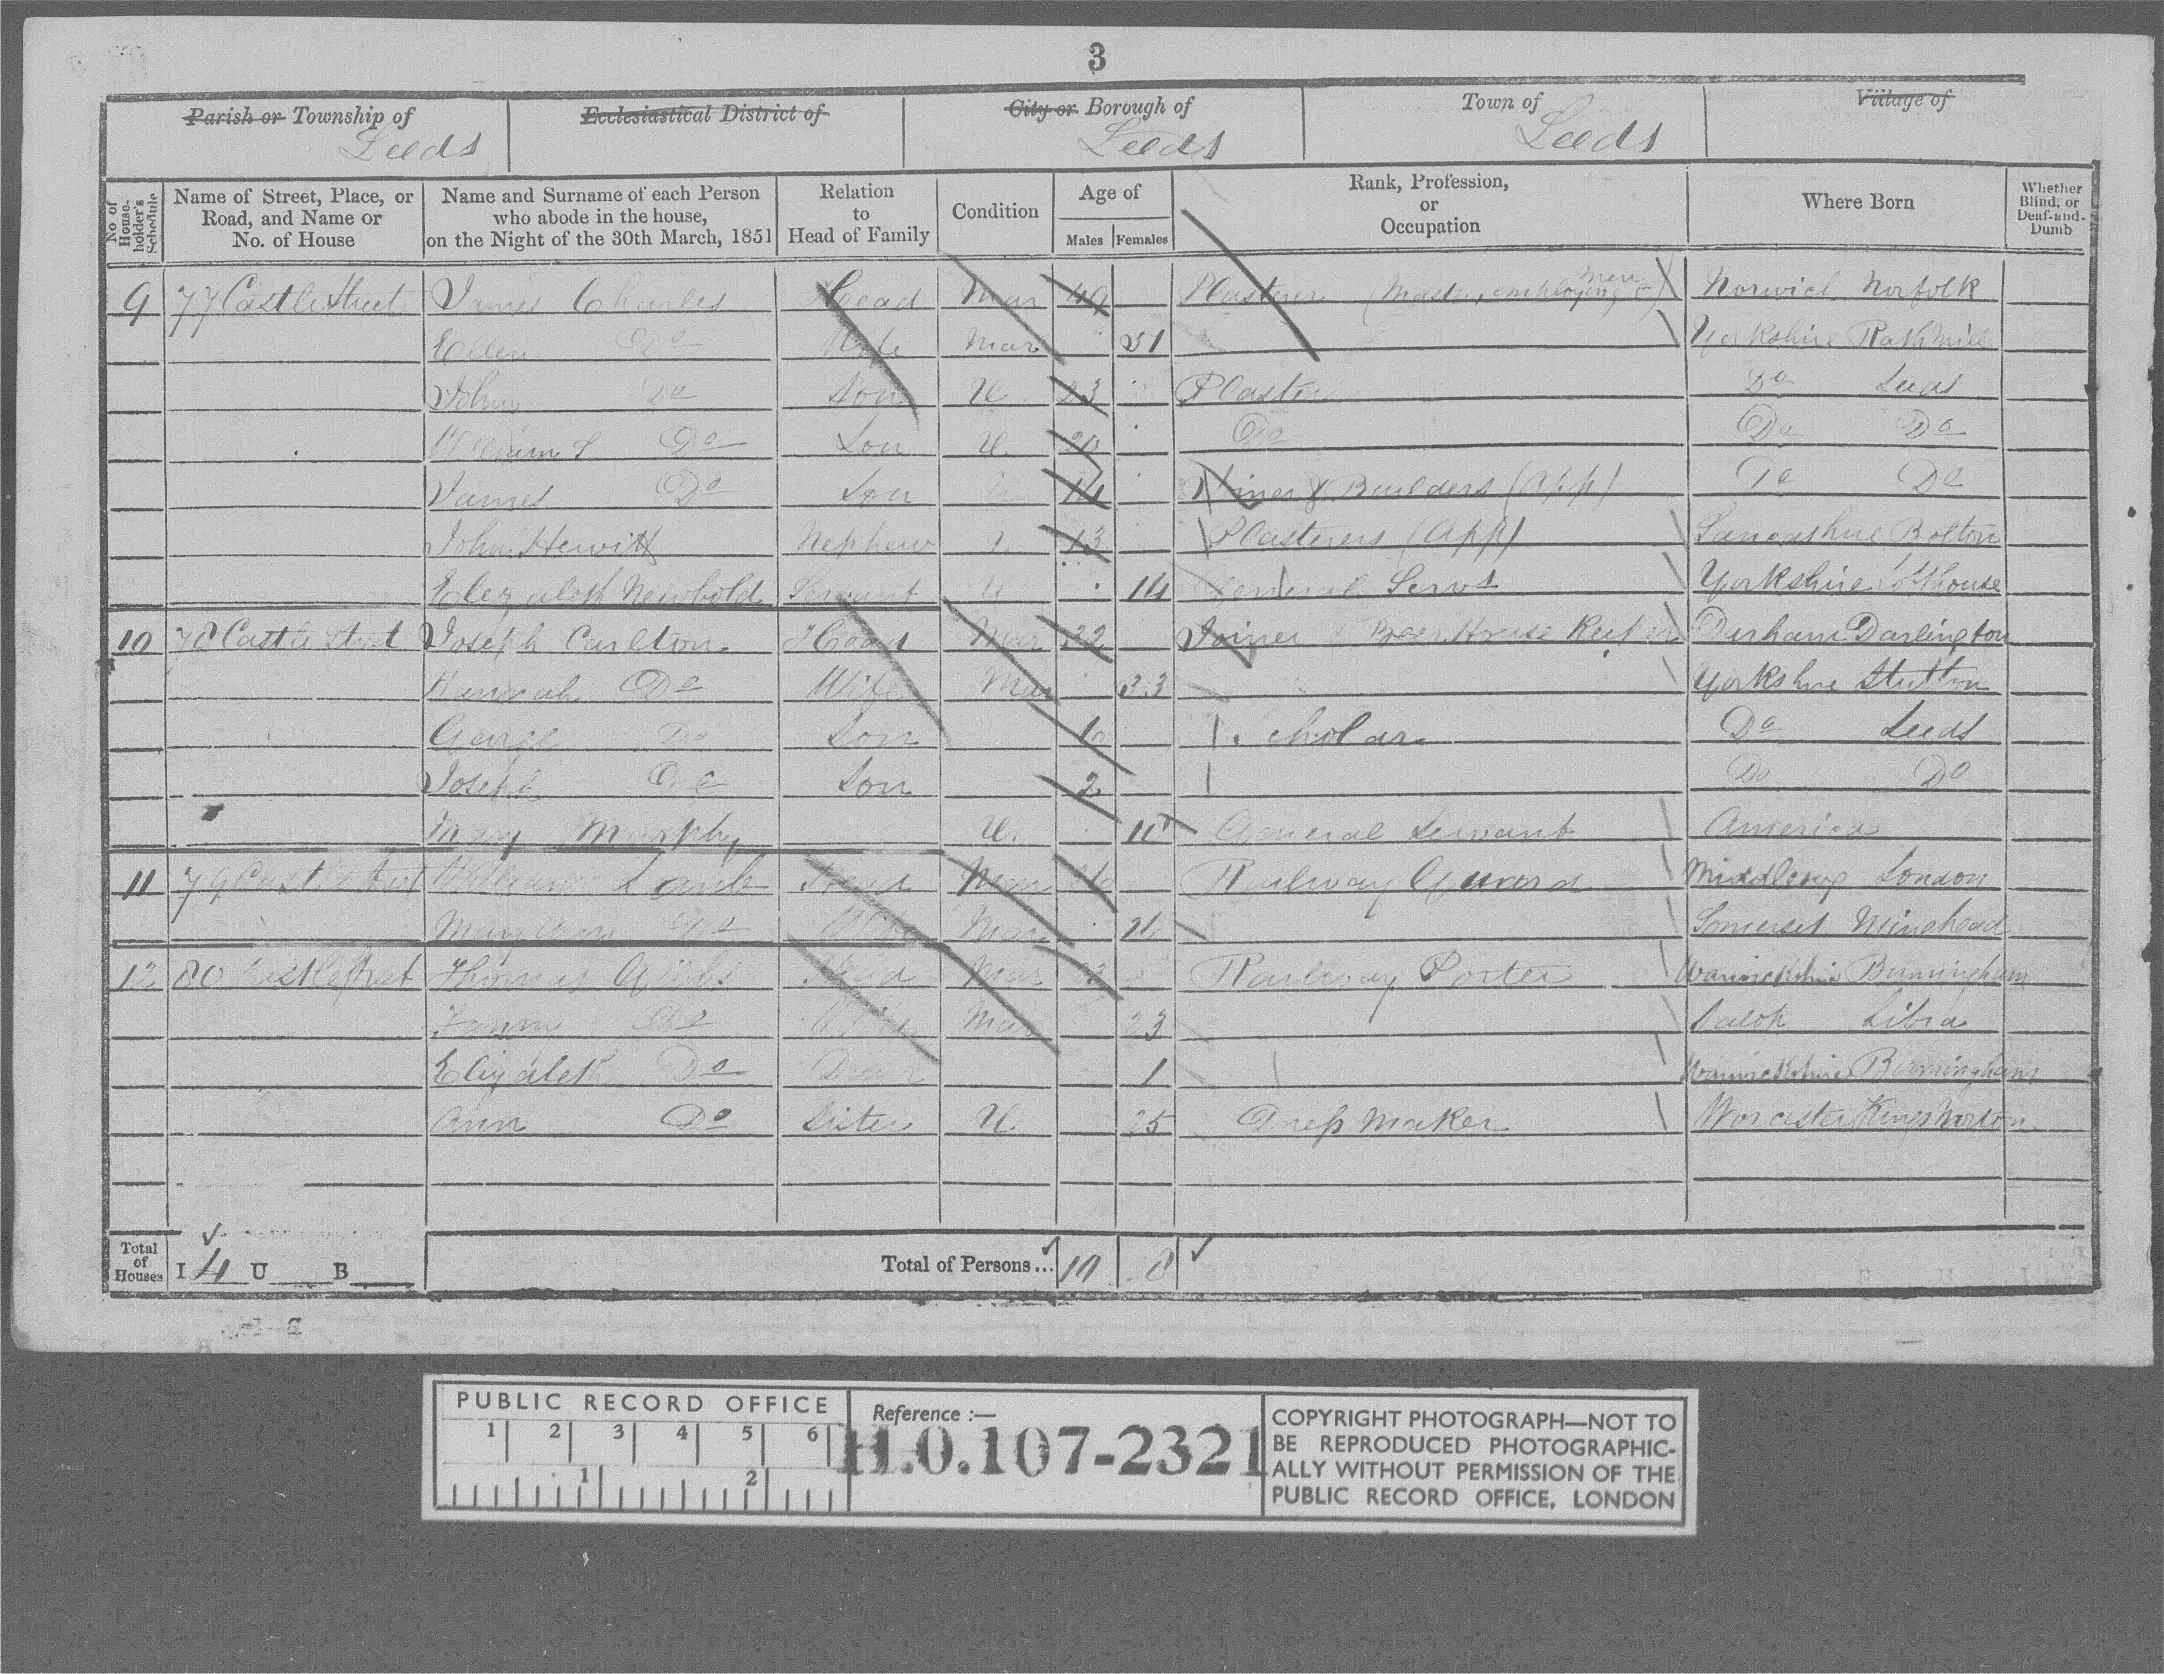 3
Parish or Township of
Leeds
Ecclesiastical District of
City or Borough of
Leeds
Town of
Leeds
Village of
No of House-holder's Schedule
Name of Street, Place, or Road, and Name or No. of House
Name and Surname of each Person who abode in the house, on the Night of the 30th March, 1851
Relation to Head of Family
Condition
Age of
Males Females
Rank, Profession, or Occupation
Where Born
Whether Blind, or Deaf-and-Dumb
9 77 Castle Street James Charles Head Mar 49 Plasterer (Master, employing men Norwich Norfolk
Ellen Do Wife Mar 51 Yorkshire Rathmill
John Do Son U 23 Plasterer Do Leeds
William S Do Son U Do Do Do
James Do Son 14 Joiner & Builders (App) Do Do
John Hewitt Nephew 13 Plasterers (App) Lancashire Bolton
Elezabeth Newbold Servant U 14 General Servt Yorkshire
10 78 Castle Street Joseph Carlton Head Mar 32 Joiner & Beer House Durham Darlington
Hannah Do Wife Mar 33 Yorkshire Stutton
George Do Son Scholar Do Leeds
Joseph Do Son 2 Do Do
Mary Murphy U. General Servant America
11 79 Castle Street William Lamb Head Mar Railway Guard Middlesex London
Mary Ann Do Wife Mar Somerset Minehead
12 80 Castle Street Thomas Head Mar Railway Porter Warwickshire Birmingham
Do Wife Mar 23
Elizabeth Do 1 Warwickshire Birmingham
Ann Do Sister U 25 Dress Maker Worcester Kings Norton
Total of Houses I 4 U B
Total of Persons...
PUBLIC RECORD OFFICE
1 2 3 4 5 6
1 2
Reference :—
H.O.107-2321
COPYRIGHT PHOTOGRAPH—NOT TO
BE REPRODUCED PHOTOGRAPHIC-
ALLY WITHOUT PERMISSION OF THE
PUBLIC RECORD OFFICE, LONDON